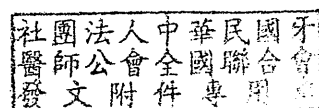 社團法人中華民國牙
醫師公會全國聯合會
發文附件專用